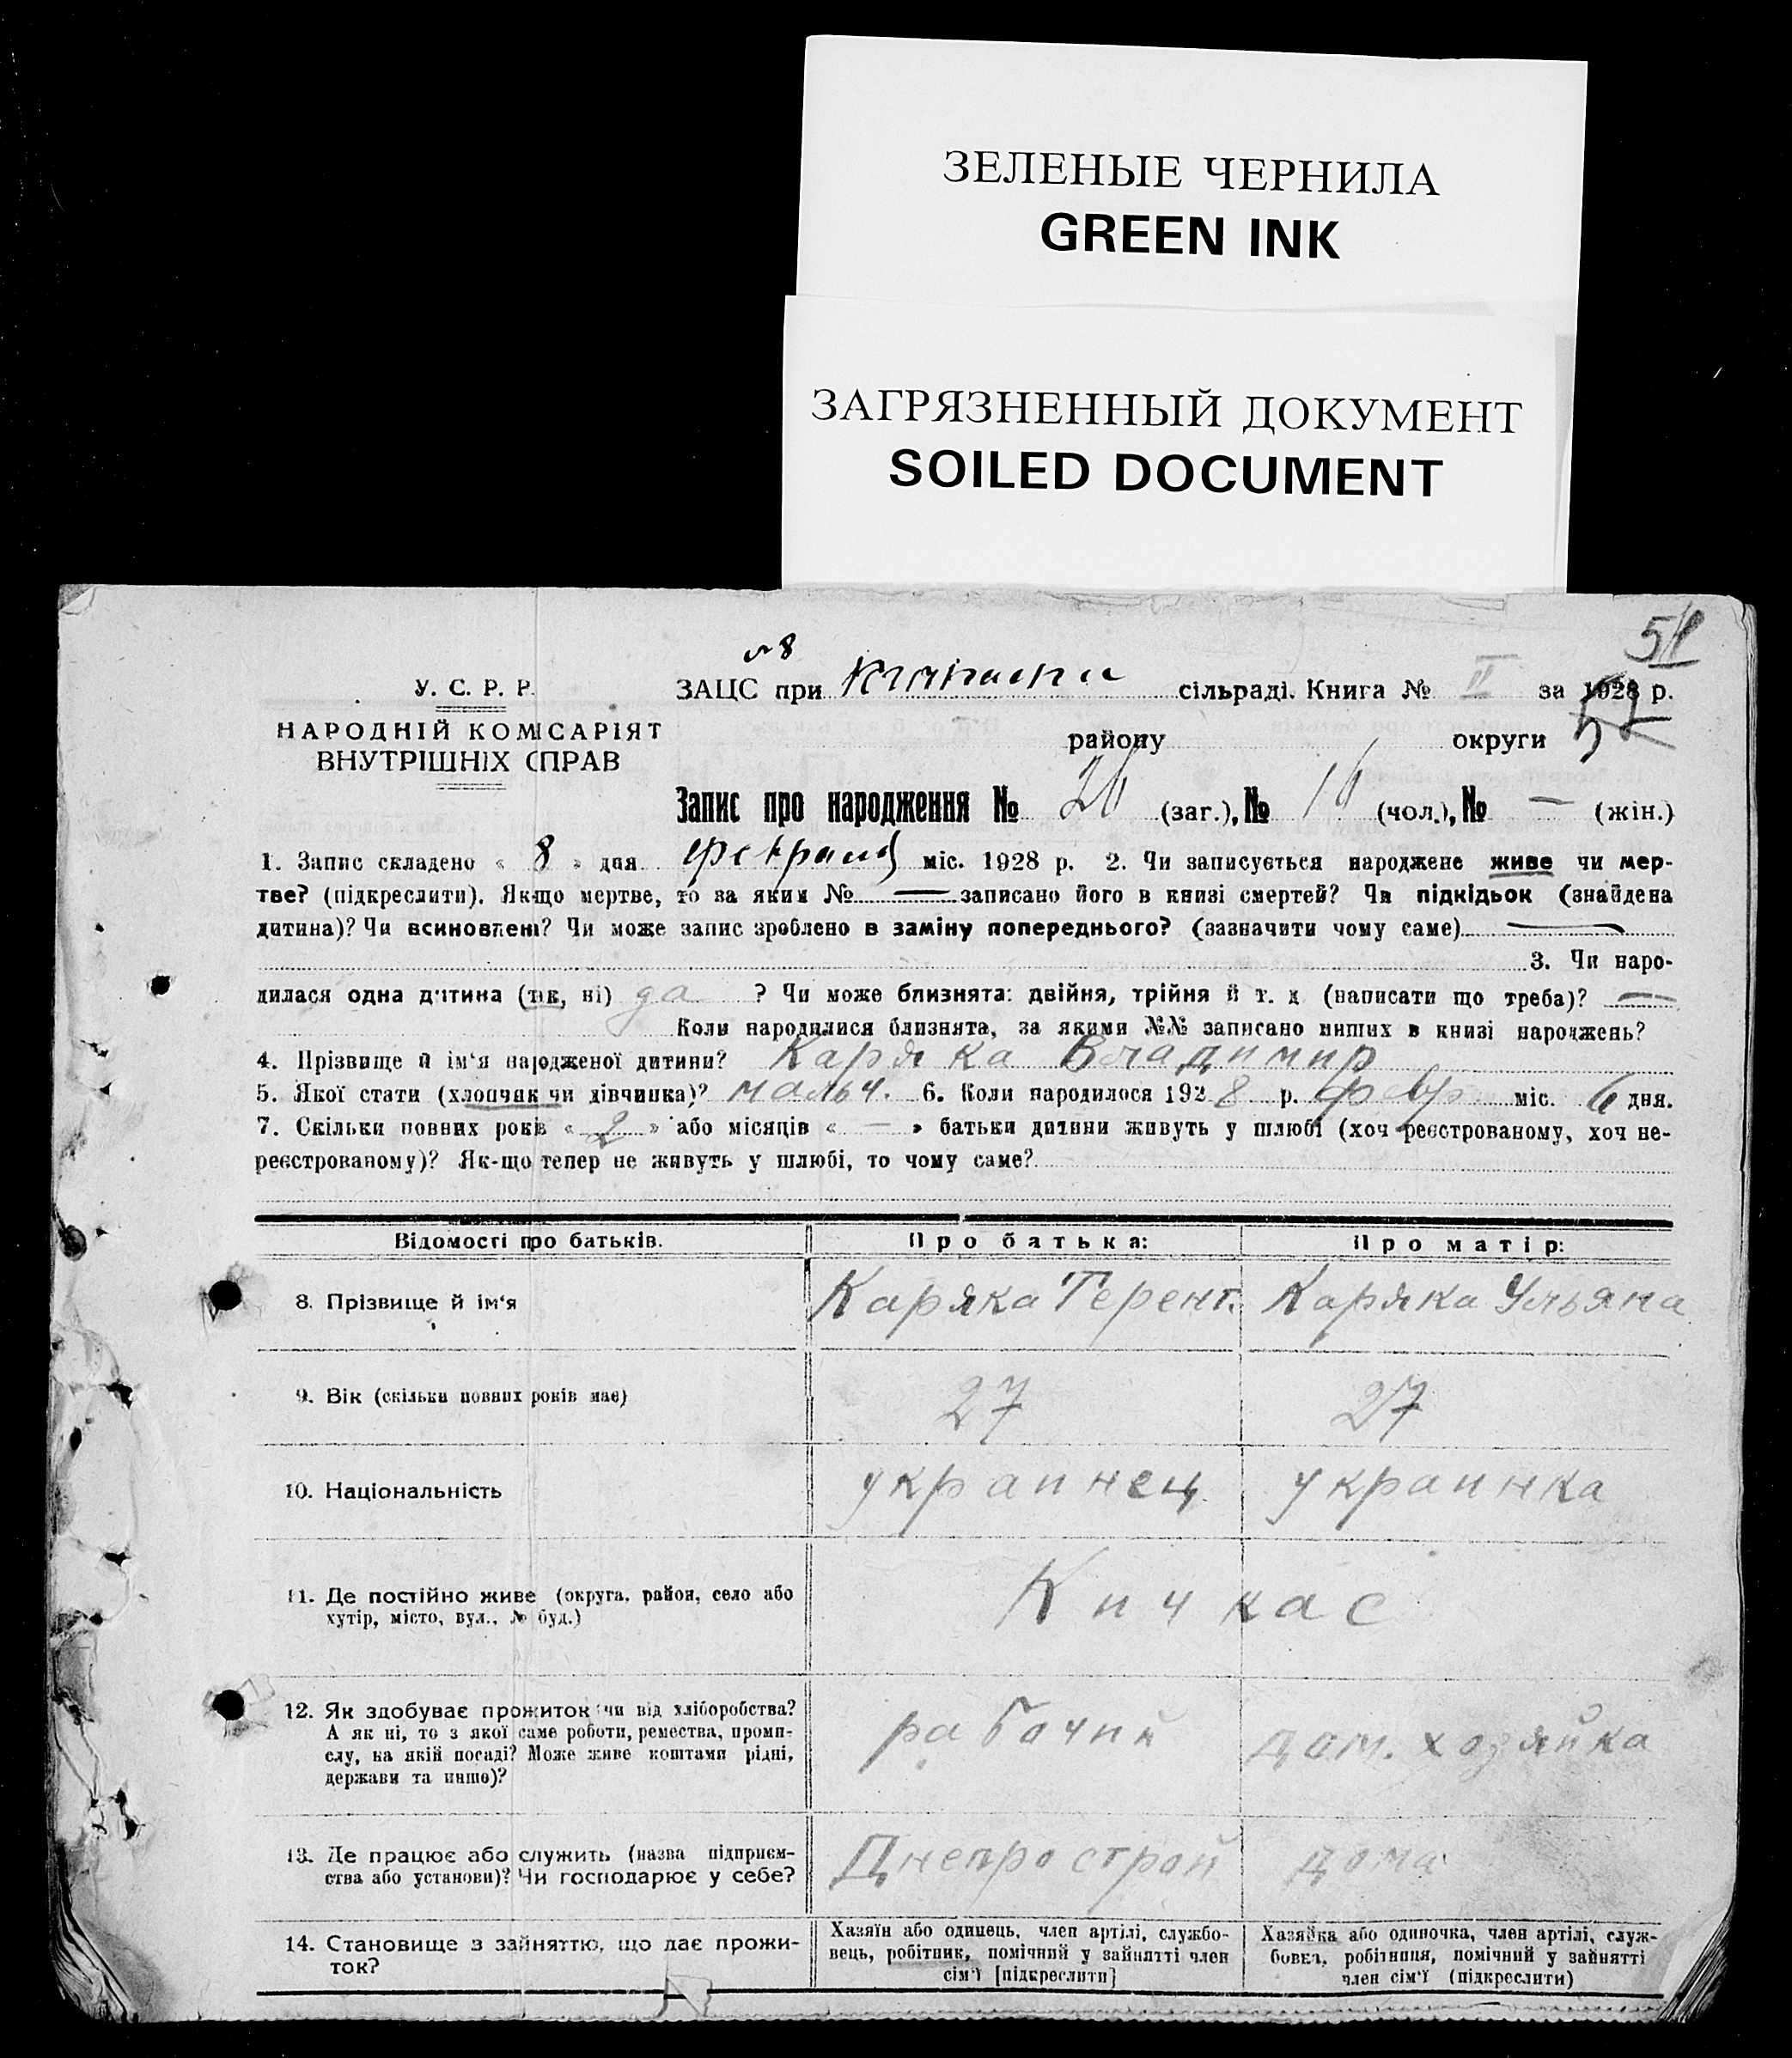 ЗЕЛЕНЫЕ ЧЕРНИЛА
GREEN INK
ЗАГРЯЗНЕННЫЙ ДОКУМЕНТ
SOILED DOCUMENT
51
№ 8
У. С. Р. Р.
ЗАЦС при сільраді. Книга № II за 1928 р.
НАРОДНІЙ КОМІСАРІЯТ
ВНУТРІШНІХ СПРАВ
району округи 52
Запис про народження № 26 (заг.), № 16 (чол.), № — (жін.)
1. Запис складено « 8 » дня Февраля міс. 1928 р. 2. Чи записується народжене живе чи мер-
тве? (підкреслити). Як-що мертве, то за яким № — записано його в книзі смертей? Чи підкідьок (знайдена
дитина)? Чи всиновлені? Чи може запис зроблено в заміну попереднього? (зазначити чому саме) —
3. Чи наро-
дилася одна дитина (так, ні) да ? Чи може близнята: двійня, трійня й т. д (написати що треба)? —
Коли народилися близнята, за якими №№ записано инших в книзі народжень?
4. Прізвище й ім'я народженої дитини? Каряка Владимир
5. Якої стати (хлопчик чи дівчинка)? мальч. 6. Коли народилося 1928 р. февр міс. 6 дня.
7. Скільки повних років « 2 » або місяців « — » батьки дитини живуть у шлюбі (хоч реєстрованому, хоч не-
реєстрованому)? Як-що тепер не живуть у шлюбі, то чому саме?
Відомості про батьків. Про батька: Про матір:
8. Прізвище й ім'я Каряка Терент. Каряка Ульяна
9. Вік (скільки повних років має) 27 27
10. Національність украинец украинка
11. Де постійно живе (округа, район, село або
хутір, місто, вул., № буд.) Кичкас
12. Як здобуває прожиток чи від хліборобства?
А як ні, то з якої саме роботи, ремества, проми-
слу, на якій посаді? Може живе коштами рідні,
держави та инше)? рабочий дом. хозяйка
13. Де працює або служить (назва підприєм-
ства або установи)? Чи господарює у себе? Днепрострой дома
14. Становище з зайняттю, що дає прожи-
ток?
Хазяїн або одинець, член артілі, службо-
вець, робітник, помічний у зайнятті член
сім'ї [підкреслити]
Хазяйка або одиночка, член артілі, служ-
бовка, робітниця, помічний у зайнятті
член сім'ї (підкреслити)